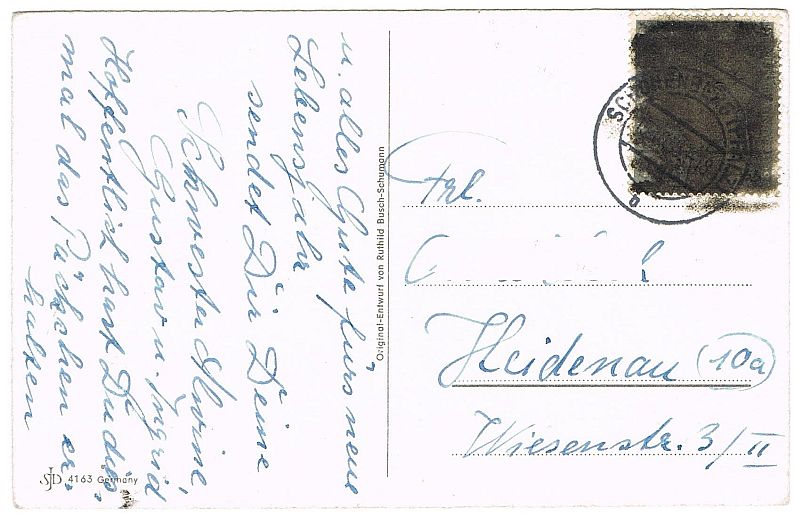 u. alles Gute fürs neue
Lebensjahr
sendet Dir Deine
Schwester Alwine,
Gustav u. Ingrid
Hoffentlich hast Du dies-
mal das Päckchen er-
halten
Original-Entwurf von Ruthild Busch-Schumann
Frl.
Heidenau (10a)
Wiesenstr. 3/II
JSD 4163 Germany